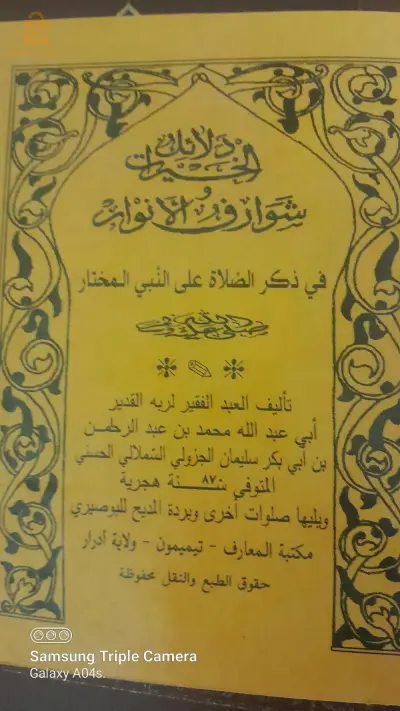 دلائل الخيرات
و
شوارق الأنوار
في ذكر الصلاة على النبي المختار
صلى الله عليه وسلم
تأليف العبد الفقير لربه القدير
أبي عبد الله محمد بن عبد الرحامن
بن أبي بكر سليمان الجزولي الشملالي الحسني
المتوفي سنة ٨٧٠ هجرية
ويليها صلوات أخرى وبردة المديح للبوصيري
مكتبة المعارف - تيميمون - ولاية أدرار
حقوق الطبع والنقل محفوظة
Samsung Triple Camera
Galaxy A04s.